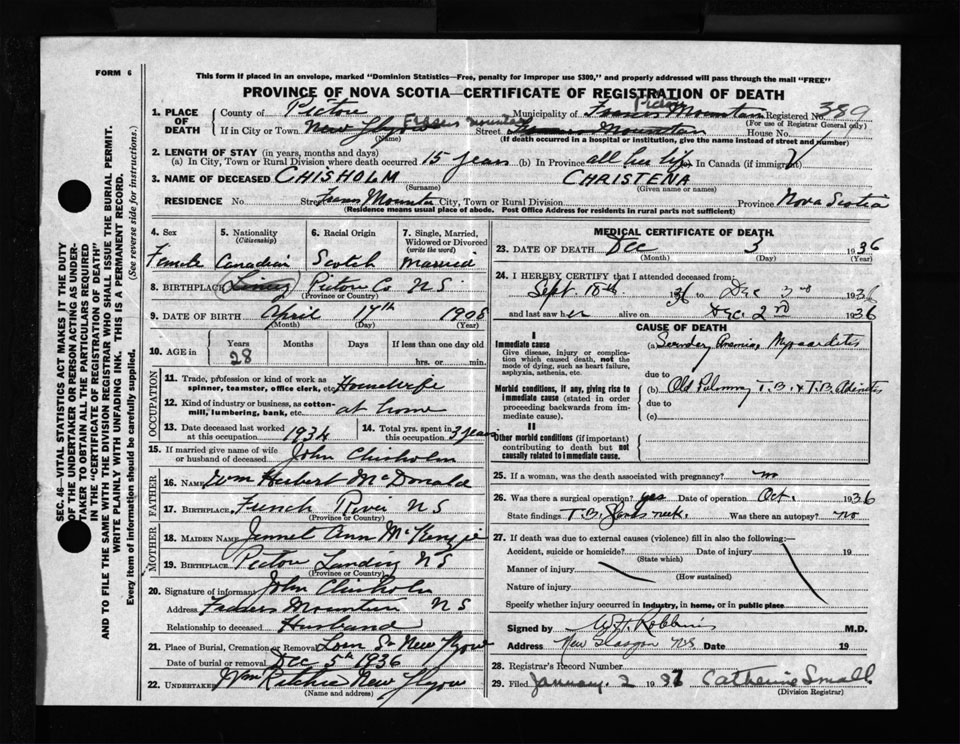 FORM 6
This form if placed in an envelope, marked "Dominion Statistics—Free, penalty for improper use $300," and properly addressed will pass through the mail "FREE"
PROVINCE OF NOVA SCOTIA—CERTIFICATE OF REGISTRATION OF DEATH
SEC. 46—VITAL STATISTICS ACT MAKES IT THE DUTY
OF THE UNDERTAKER OR PERSON ACTING AS UNDER-
TAKER TO OBTAIN ALL THE PARTICULARS REQUIRED
IN THE "CERTIFICATE OF REGISTRATION OF DEATH"
AND TO FILE THE SAME WITH THE DIVISION REGISTRAR WHO SHALL ISSUE THE BURIAL PERMIT.
WRITE PLAINLY WITH UNFADING INK. THIS IS A PERMANENT RECORD.
Every item of information should be carefully supplied. (See reverse side for instructions.)
1. PLACE OF DEATH
County of Pictou Municipality of Pictou Mountain Registered No. 389
(For use of Registrar General only)
If in City or Town New Mountain Street Mountain House No.
(Name) (If death occurred in a hospital or institution, give the name instead of street and number)
2. LENGTH OF STAY (in years, months and days)
(a) In City, Town or Rural Division where death occurred 15 years (b) In Province all her life In Canada (if immigrant)
3. NAME OF DECEASED CHISHOLM CHRISTENA
(Surname) (Given name or names)
RESIDENCE No. Street City, Town or Rural Division Province Nova Scotia
(Residence means usual place of abode. Post Office Address for residents in rural parts not sufficient)
4. Sex
Female
5. Nationality
(Citizenship)
Canadian
6. Racial Origin
Scotch
7. Single, Married,
Widowed or Divorced
(write the word)
Married
8. BIRTHPLACE Pictou Co N S
(Province or Country)
9. DATE OF BIRTH April 17th 1908
(Month) (Day) (Year)
10. AGE in
Years Months Days If less than one day old
28 hrs. or min.
OCCUPATION
11. Trade, profession or kind of work as
spinner, teamster, office clerk, etc. Housewife
12. Kind of industry or business, as cotton-
mill, lumbering, bank, etc. at home
13. Date deceased last worked
at this occupation 1934
14. Total yrs. spent in
this occupation 3 years
15. If married give name of wife
or husband of deceased John Chisholm
FATHER
16. NAME Wm Herbert McDonald
17. BIRTHPLACE French River N S
(Province or Country)
MOTHER
18. MAIDEN NAME Jennet Ann McKenzie
19. BIRTHPLACE Pictou Landing N S
(Province or Country)
20. Signature of informant John Chisholm
Address Mountain N S
Relationship to deceased Husband
21. Place of Burial, Cremation or Removal New
Date of burial or removal Dec 5th 1936
22. UNDERTAKER Wm Ritchie New
(Name and address)
MEDICAL CERTIFICATE OF DEATH
23. DATE OF DEATH Dec 3 1936
(Month) (Day) (Year)
24. I HEREBY CERTIFY that I attended deceased from:
Sept. 18th 1936 to Dec 3rd 1936
and last saw her alive on Dec. 2nd 1936
CAUSE OF DEATH
I
Immediate cause
Give disease, injury or complica-
tion which caused death, not the
mode of dying, such as heart failure,
asphyxia, asthenia, etc.
(a) Secondary Anemia, Myocarditis
due to
Morbid conditions, if any, giving rise to
immediate cause (stated in order
proceeding backwards from im-
mediate cause).
(b) Old Pulmonary T.B. & T.B. Adenitis
due to
(c)
II
Other morbid conditions (if important)
contributing to death but not
causally related to immediate cause.
25. If a woman, was the death associated with pregnancy? no
26. Was there a surgical operation? yes Date of operation Oct. 1936
State findings T.B. Glands neck. Was there an autopsy? no
27. If death was due to external causes (violence) fill in also the following:—
Accident, suicide or homicide? Date of injury 19
(State which)
Manner of injury
(How sustained)
Nature of injury
Specify whether injury occurred in industry, in home, or in public place
Signed by Robbins M.D.
Address New Glasgow N.S. Date 19
28. Registrar's Record Number
29. Filed January 2 1937 Catherine Small
(Division Registrar)